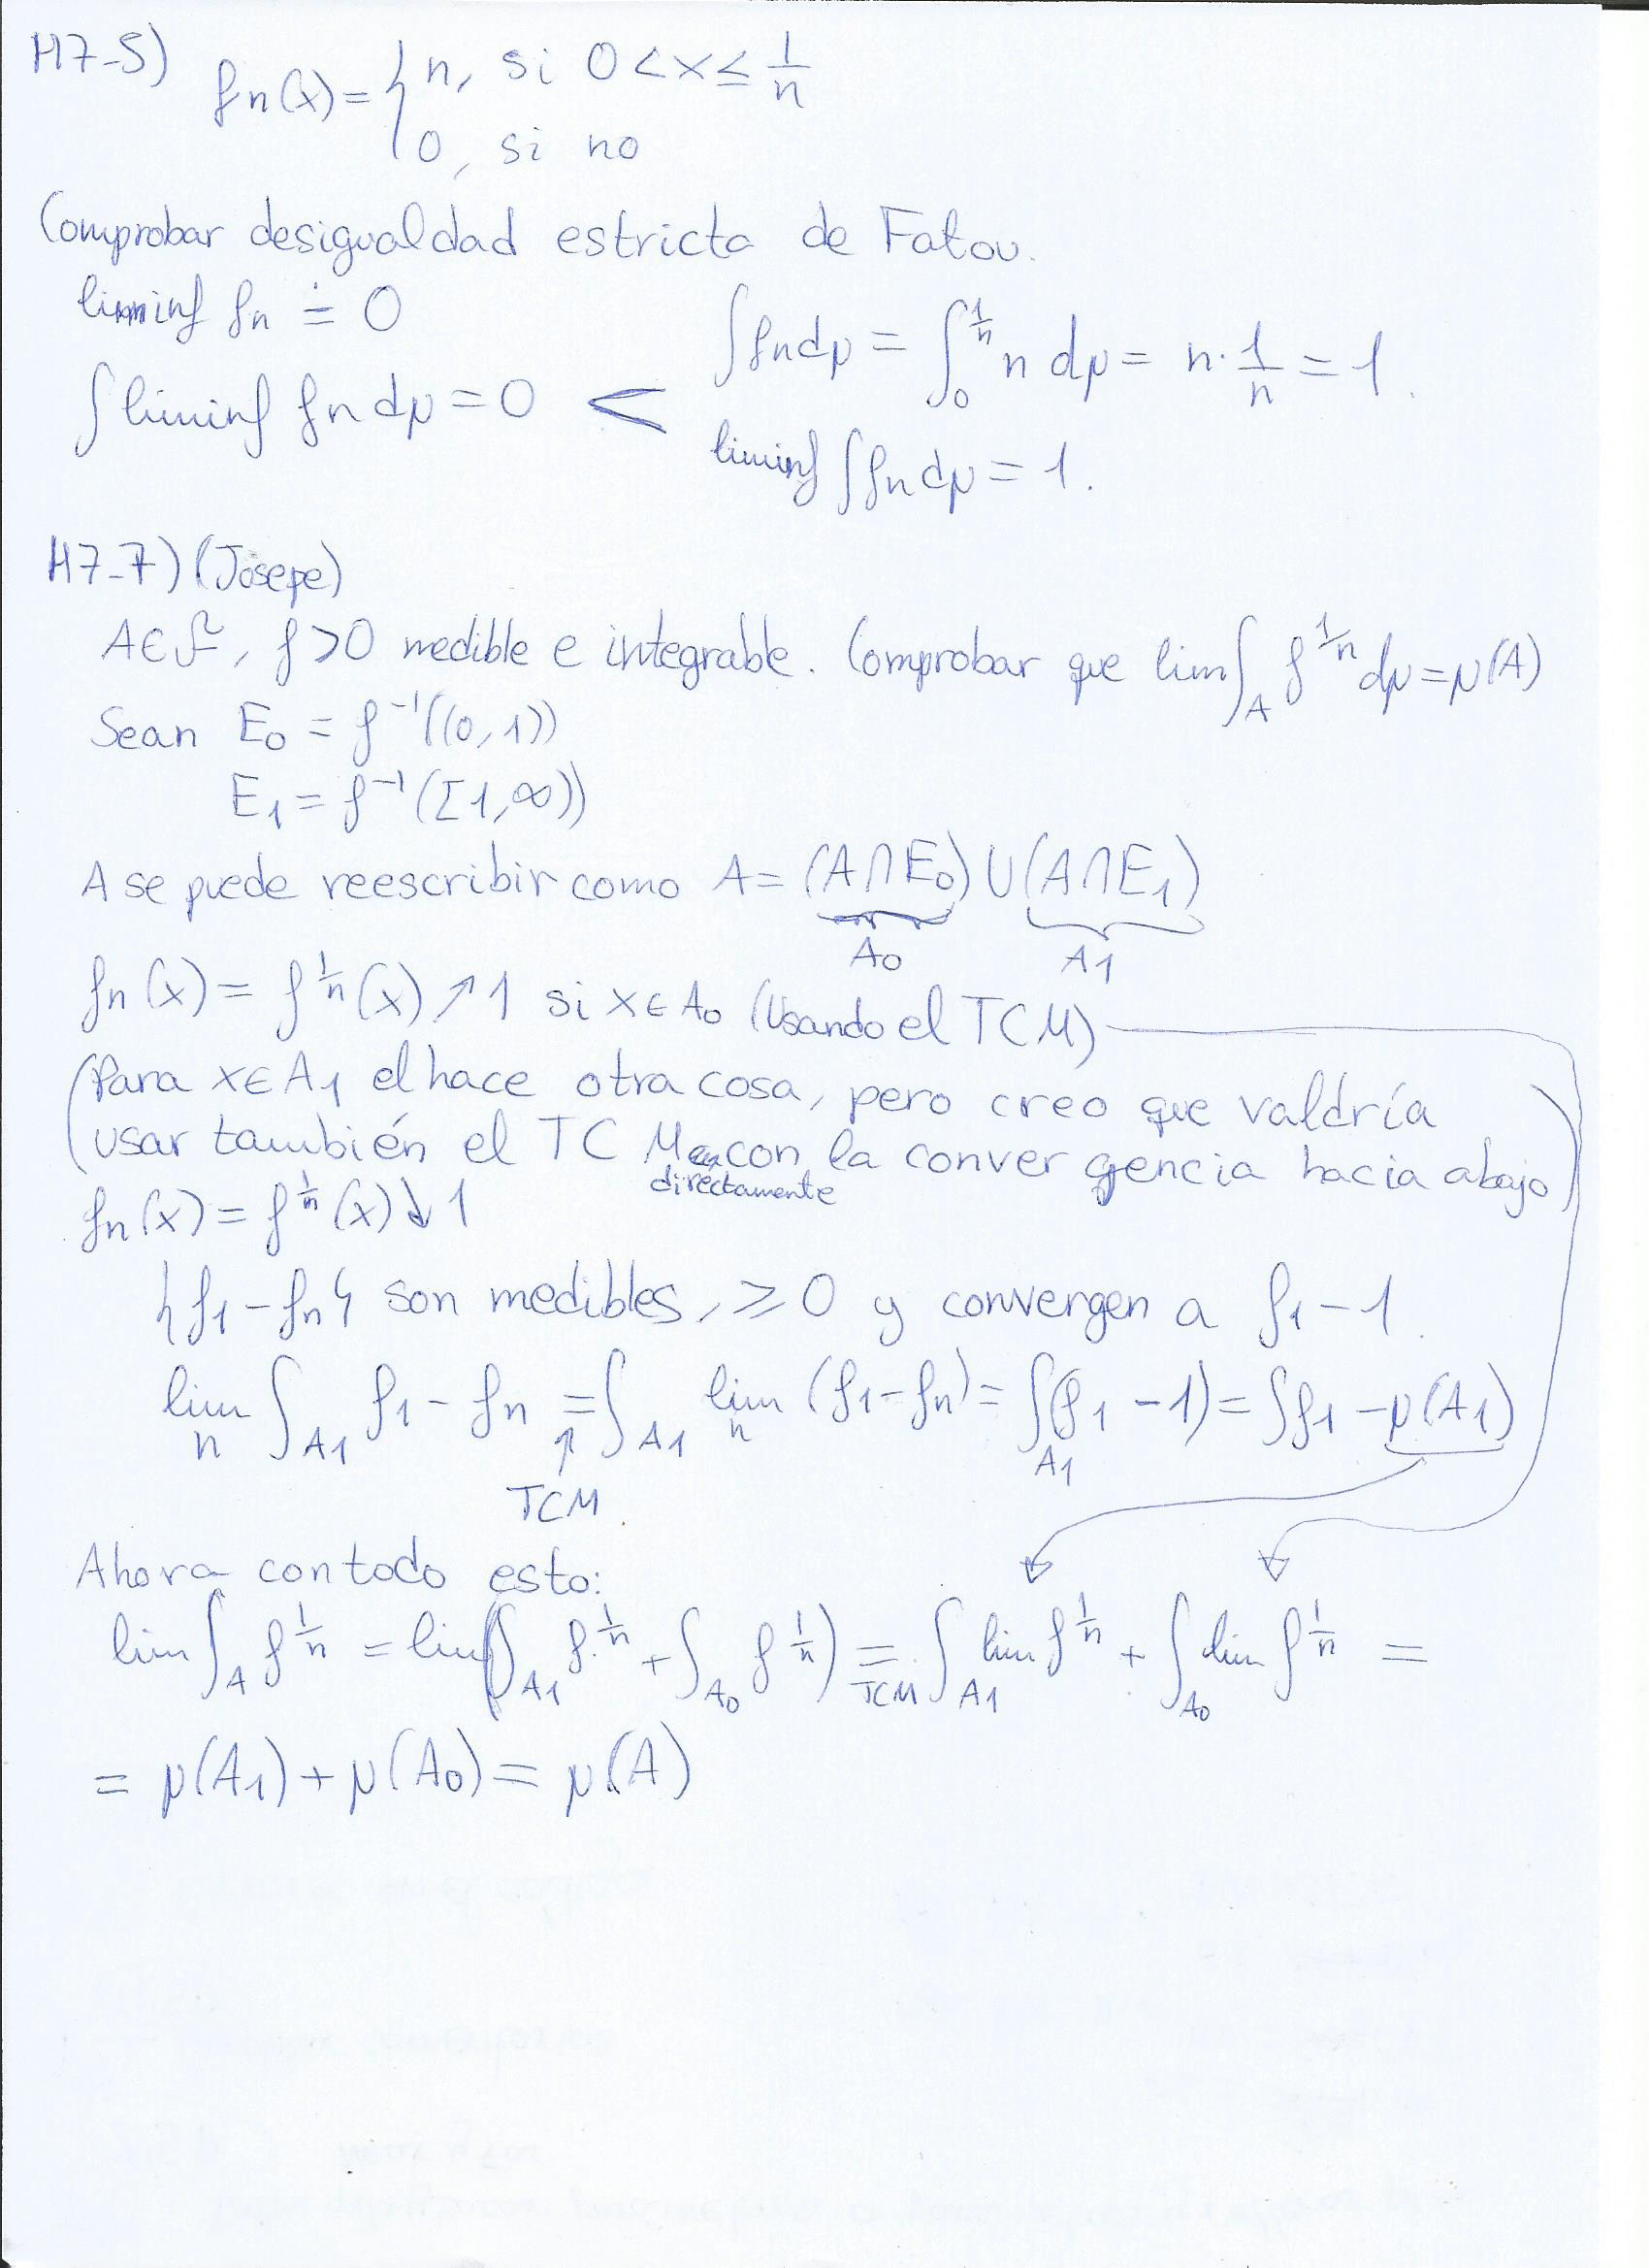 H7-5) fn(x) = { n, si 0 < x ≤ 1/n
0, si no
Comprobar desigualdad estricta de Fatou.
liminf fn = 0
∫ fn dμ = ∫_0^{1/n} n dμ = n · 1/n = 1.
∫ liminf fn dμ = 0 <
liminf ∫ fn dμ = 1.
H7-7) (Josepe)
A ∈ F, f > 0 medible e integrable. Comprobar que lim ∫_A f^{1/n} dμ = μ(A)
Sean E0 = f^{-1}((0,1))
E1 = f^{-1}([1,∞))
A se puede reescribir como A = (A∩E0) ∪ (A∩E1)
A0 A1
fn(x) = f^{1/n}(x) ↗ 1 si x ∈ A0 (Usando el TCM)
(Para x ∈ A1 el hace otra cosa, pero creo que valdría
usar también el TCM con la convergencia hacia abajo)
directamente
fn(x) = f^{1/n}(x) ↓ 1
{f1 - fn} son medibles, ≥ 0 y convergen a f1 - 1.
lim_n ∫_{A1} f1 - fn = ∫_{A1} lim_n (f1 - fn) = ∫_{A1} (f1 - 1) = ∫ f1 - μ(A1)
↑
TCM.
Ahora con todo esto:
lim ∫_A f^{1/n} = lim (∫_{A1} f^{1/n} + ∫_{A0} f^{1/n}) =_{TCM} ∫_{A1} lim f^{1/n} + ∫_{A0} lim f^{1/n} =
= μ(A1) + μ(A0) = μ(A)